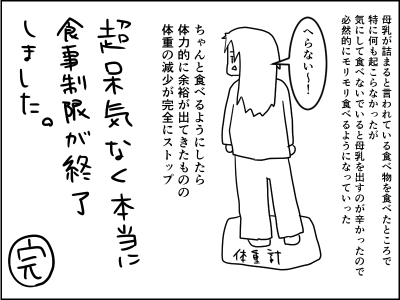 母乳が詰まると言われている食べ物を食べたところで
特に何も起こらなかったが
気にして食べないでいると母乳を出すのが辛かったので
必然的にモリモリ食べるようになっていった
へらない〜！
体重計
ちゃんと食べるようにしたら
体力的に余裕が出てきたものの
体重の減少が完全にストップ
超呆気なく本当に
食事制限が終了
しました。
完